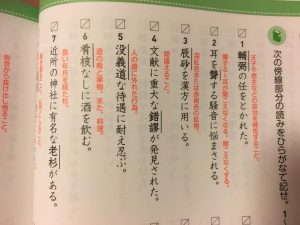 次の傍線部分の読みをひらがなで記せ。 1〜
天子や君主などの政治を補佐すること。
1 輔弼の任をとかれた。
2 耳を聾する騒音に悩まされる。
3 辰砂を漢方に用いる。
間違えること。
4 文献に重大な錯謬が発見された。
人の道に外れた行為。
5 没義道な待遇に耐え忍ぶ。
6 肴核なしに酒を飲む。
長い年月を経た杉。
7 近所の神社に有名な老杉がある。